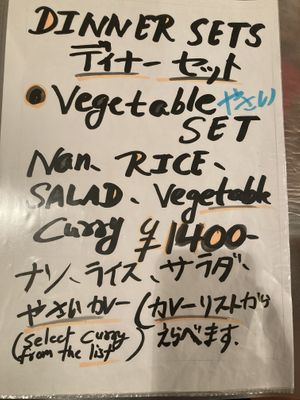 DINNER SETS
ディナー セット
Vegetable やさい
SET
Nan、RICE、
SALAD、Vegetable
Curry ¥1400-
ナン、ライス、サラダ、
やさいカレー (カレーリストから
(Select Curry えらべます.
from the list)